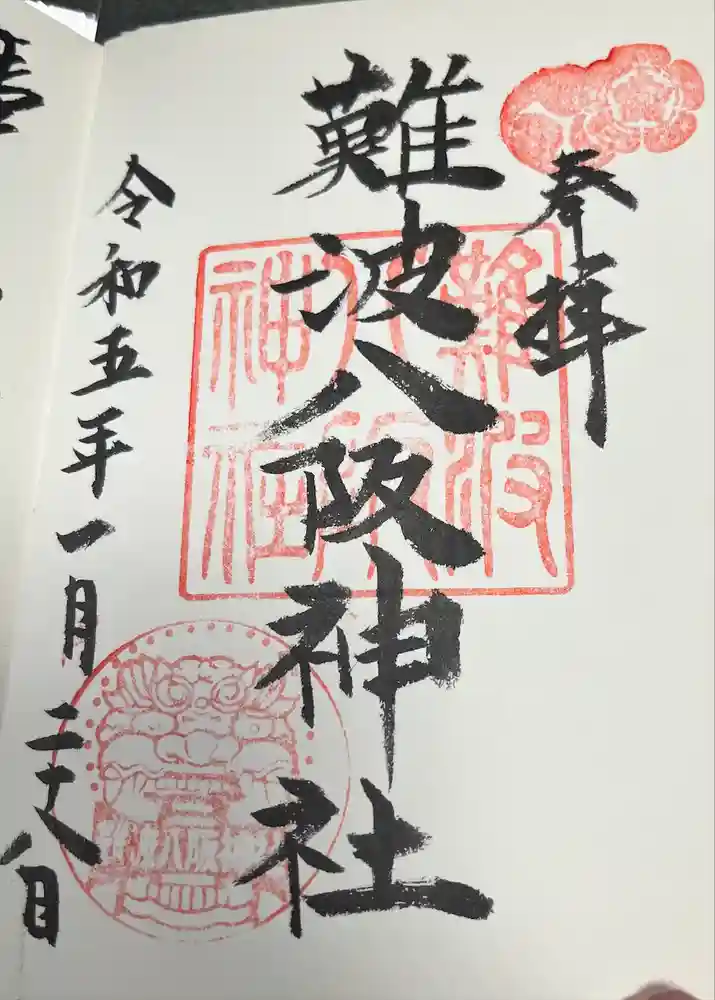 奉拝
難波八阪神社
難波
八阪
神社
令和五年一月二十八日
難波八阪神社